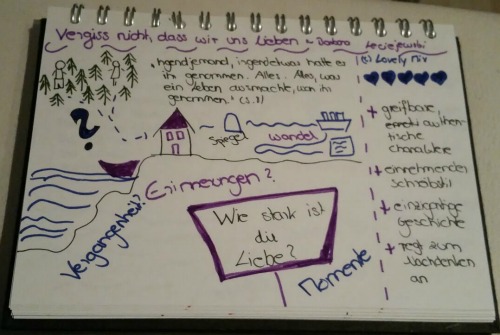 Vergiss nicht, dass wir uns lieben ~ Barbara Leciejewski
"Irgendjemand, irgendetwas hatte es
ihr genommen. Alles. Alles, was
ein Leben ausmachte, war ihr
genommen." (S.8)
?
Spiegel
wandel
Erinnerungen?
Vergangenheit?
Wie stark ist
die
Liebe?
Momente
(c) Lovely Mix
+ greifbare,
authen-
tische
Charaktere
+ einnehmender
Schreibstil
+ einzigartige
Geschichte
+ regt zum
Nachdenken
an